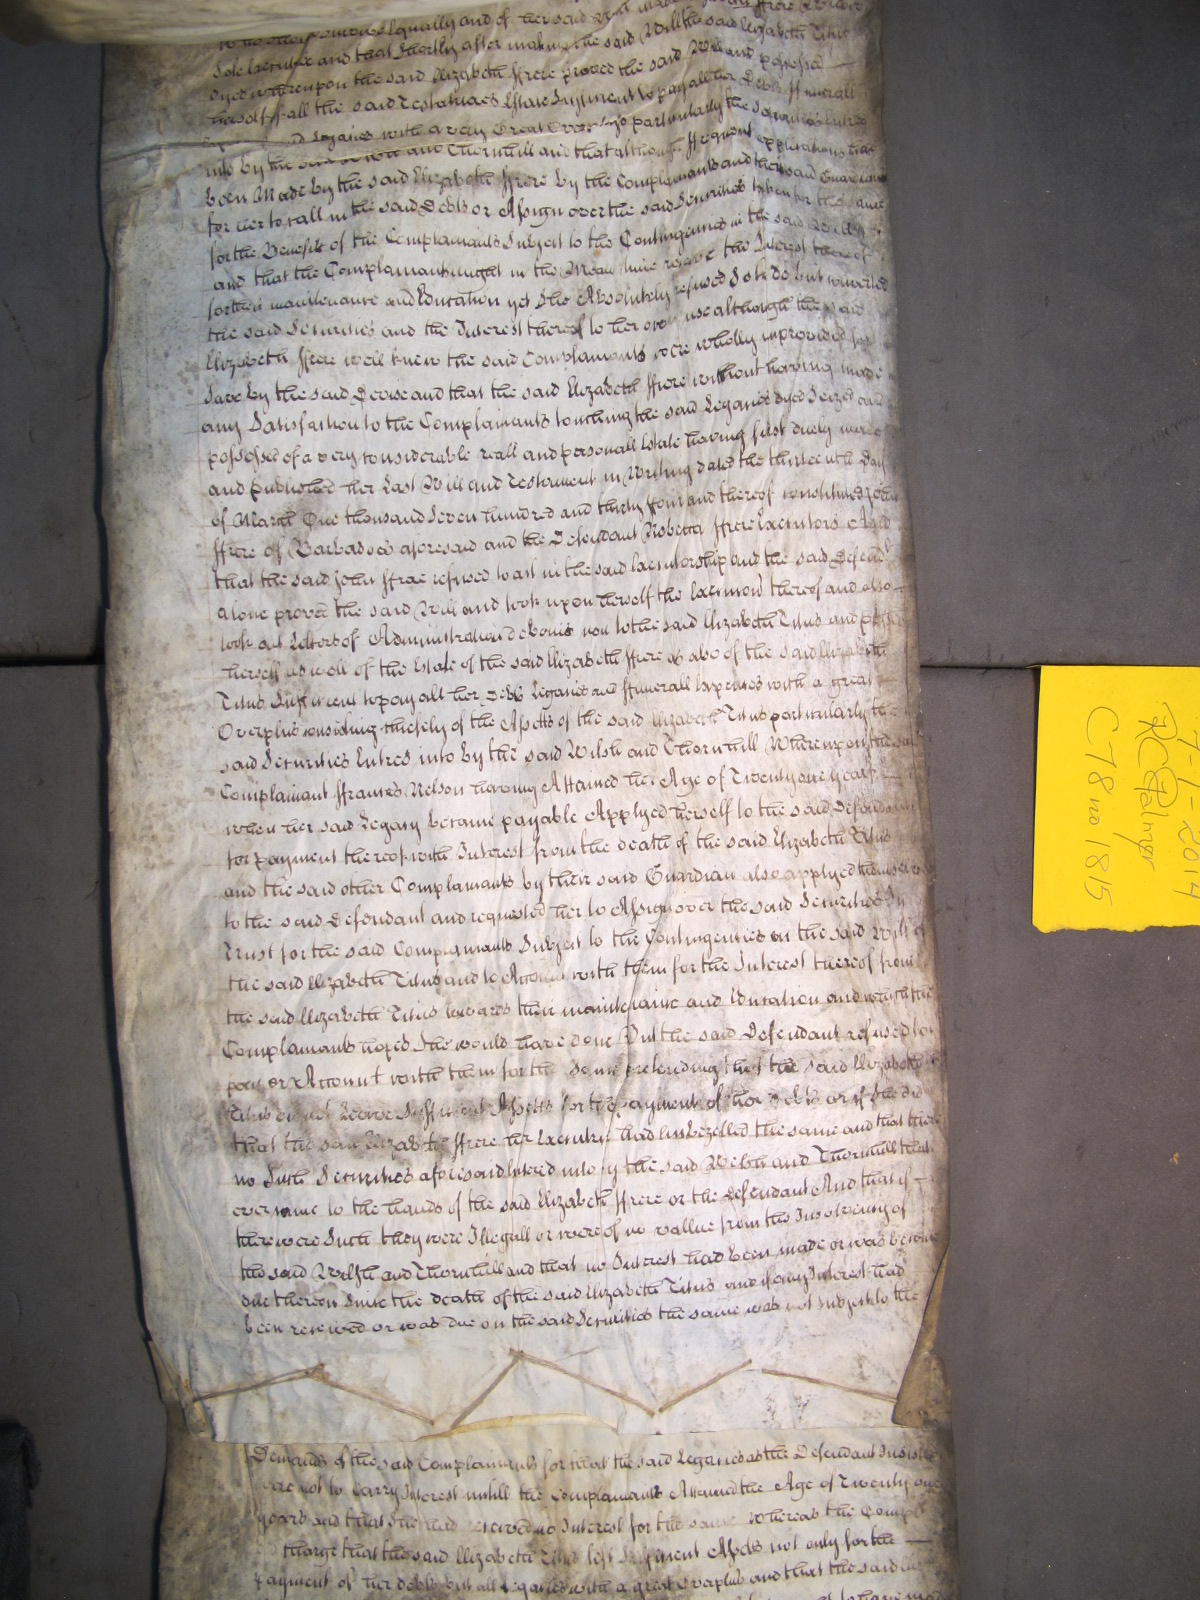 Equally and of her said Will made
Sole Executrix and that Shortly after making the said Will the said Elizabeth Titus
dyed whereupon the said Elizabeth Ffrere proved the said Will and possessed
herself of all the said Testatrixes Estate Sufficient to pay all her Debts Ffunerall
Legacies with a very Great Overplus particularly the Securities Entred
into by the said and Thornhill and that although ffrequent applications have
been Made by the said Elizabeth Ffrere by the Complainants and their said Guardian
for her to call in the said Debts or Assign over the said Securities taken for the same
for the Benefit of the Complainants Subject to the Contingencies in the said Will
and that the Complainants might in the Mean time receive the Interest thereof
for their maintenance and Education yet She Absolutely refused So to do but converted
the said Securities and the Interest thereof to her own use although the said
Elizabeth Ffrere well knew the said Complainants were wholly unprovided for
Save by the said Devise and that the said Elizabeth Ffrere without having made
any Satisfaction to the Complainants touching the said Legacies dyed Seized and
possessed of a very considerable reall and personall Estate having first duely made
and published her Last Will and Testament in Writing dated the thirteenth Day
of March One thousand Seven hundred and thirty ffour and thereof constituted John
Ffrere of Barbadoes aforesaid and the Defendant Robecca Ffrere Executors And
that the said John Ffrere refused to act in the said Executorship and the said Defendt
alone proved the said Will and took upon herself the Execucon thereof and also
took out Letters of Administration de bonis non to the said Elizabeth Titus and possessed
herself as well of the Estate of the said Elizabeth Ffrere as also of the said Elizabeth
Titus Sufficient to pay all her Debts Legacies and Ffunerall Expences with a great
Overplus consisting chiefely of the Assetts of the said Elizabeth Titus particularly the
said Securities Entred into by the said Welsh and Thornhill Whereupon the said
Complainant Ffrances Nelson having Attained her Age of Twenty one years
when her said Legacy became payable Applyed herself to the said Defendant
for payment thereof with Interest from the death of the said Elizabeth Titus
and the said other Complainants by their said Guardian also applyed themselves
to the said Defendant and requested her to Assign over the said Securities In
Trust for the said Complainants Subject to the Contingencies in the said Will of
the said Elizabeth Titus and to Account with them for the Interest thereof from
the said Elizabeth Titus towards their maintenance and Education and which the
Complainants hoped She would have done But the said Defendant refused to
pay or Account with them for the Same pretending that the said Elizabeth
Titus did not Leave Sufficient Assetts for the payment of her Debts or if She did
that the said Elizabeth Ffrere her Executrix had Imbezelled the same and that there
no Such Securities aforesaid Entered into by the said Welsh and Thornhill that
ever came to the hands of the said Elizabeth Ffrere or the Defendant And that if
there were Such they were Illegall or were of no vallue from the Insolvency of
the said Welsh and Thornhill and that no Interest had been made or was become
due thereon Since the death of the said Elizabeth Titus and if any Interest had
been received or was due on the said Securities the same was not Subject to the
Demands of the said Complainants for that the said Legacies as the Defendant Insisted
were not to Carry Interest untill the Complainants Attained the Age of Twenty one
years and that She had received no Interest for the same Whereas the Complts
charge that the said Elizabeth Titus left Sufficient Assets not only for the
payment of her debts but all Legacies with a great Overplus and that the said
7-1-2014
RCB
C78 no 1815